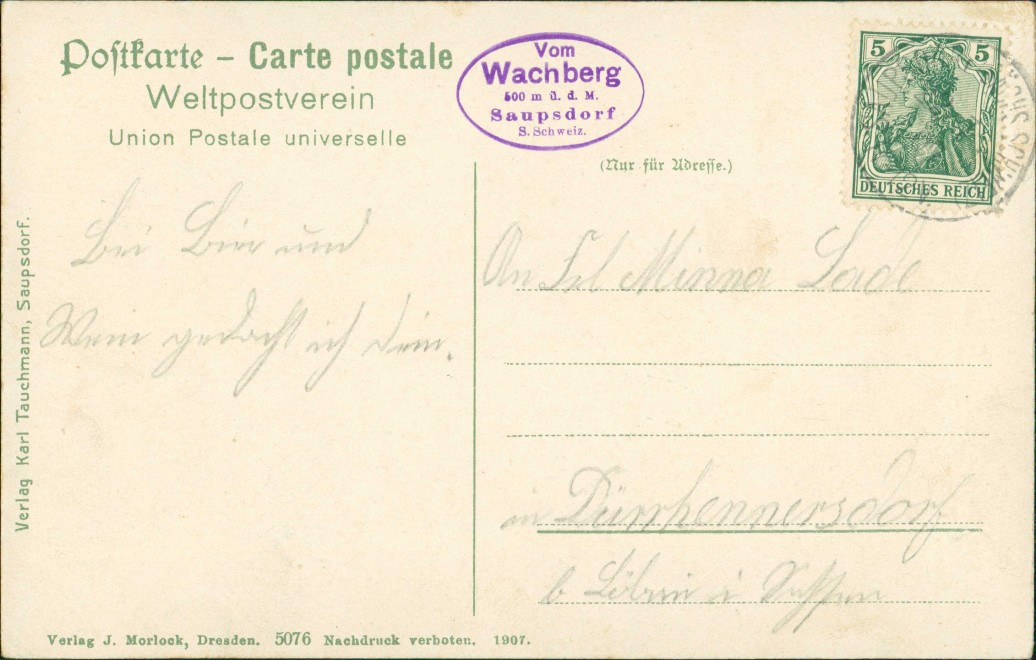 Postkarte – Carte postale
Weltpostverein
Union Postale universelle
Vom
Wachberg
500 m ü. d. M.
Saupsdorf
S. Schweiz.
5 5
DEUTSCHES REICH
(Nur für Adresse.)
Bei Bier und
Wein gedacht ich dein.
An Frl Minna Lade
in Dürrhennersdorf
b Löbau i Sachsen
Verlag Karl Tauchmann, Saupsdorf.
Verlag J. Morlock, Dresden. 5076 Nachdruck verboten. 1907.